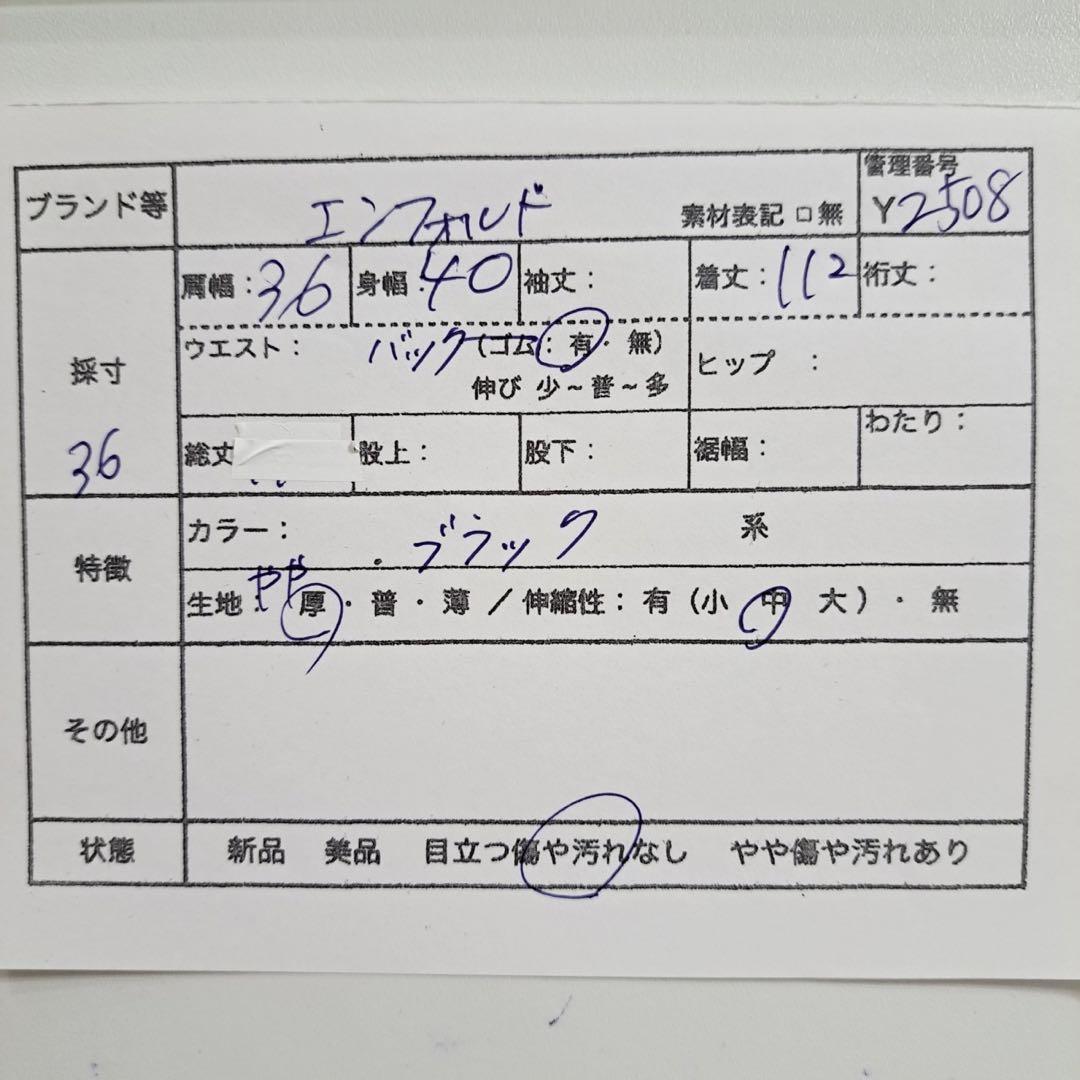 ブランド等 エンフォルド 素材表記 □ 無 管理番号 Y2508
採寸 36
肩幅：36 身幅：40 袖丈： 着丈：112 裄丈：
ウエスト： バック (ゴム：有・無) ヒップ ：
伸び 少～普～多
総丈 股上： 股下： 裾幅： わたり：
特徴
カラー： ブラック 系
生地 やや 厚・普・薄 / 伸縮性：有 (小 中 大)・無
その他
状態 新品 美品 目立つ傷や汚れなし やや傷や汚れあり